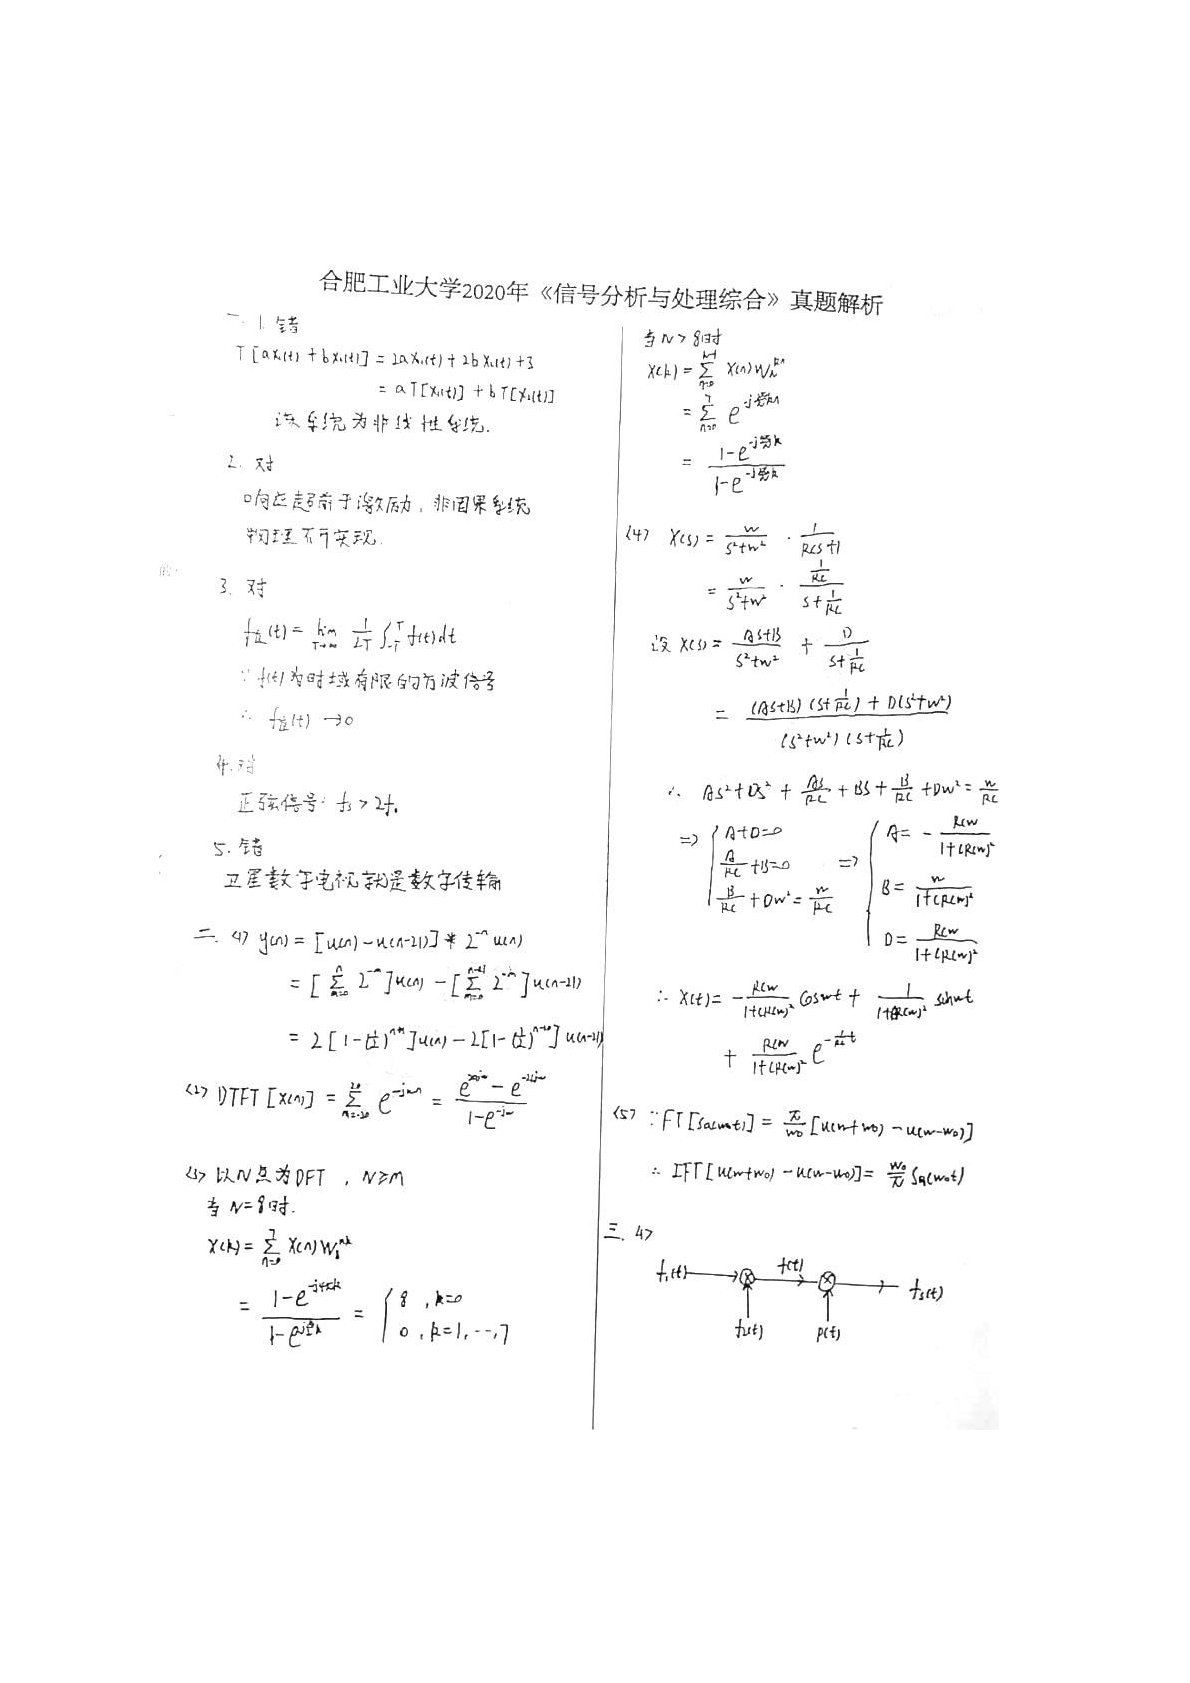 合肥工业大学2020年《信号分析与处理综合》真题解析
一. 1. 错
T[ax₁(t) + bx₂(t)] = 2ax₁(t) + 2bx₂(t) + 3
= aT[x₁(t)] + bT[x₂(t)]
该系统为非线性系统.
2. 对
响应超前于激励, 非因果系统
物理不可实现.
3. 对
f直(t) = lim T→∞ 1/2T ∫_{-T}^{T} f(t)dt
∵ f(t)为时域有限的方波信号
∴ f直(t) → 0
4. 对
正弦信号: fs > 2f₀
5. 错
卫星数字电视就是数字传输
二. (1) y(n) = [u(n) - u(n-21)] * 2^{-n} u(n)
= [Σ_{m=0}^{n} 2^{-m}]u(n) - [Σ_{m=0}^{n-21} 2^{-m}]u(n-21)
= 2[1-(1/2)^{n+1}]u(n) - 2[1-(1/2)^{n-20}]u(n-21)
(2) DTFT[x(n)] = Σ_{n=-20}^{20} e^{-jωn} = (e^{20jω} - e^{-21jω})/(1-e^{-jω})
(3) 以N点为DFT , N≥M
当 N=8时.
X(k) = Σ_{n=0}^{7} x(n)W₈^{nk}
= = { 8 , k=0
0 , k=1, ..., 7
当N>8时
X(k) = Σ_{n=0}^{N-1} x(n)W_N^{kn}
= Σ_{n=0}^{7} e^{-j(2π/N)kn}
= (1-e^{-j(16π/N)k})/(1-e^{-j(2π/N)k})
(4) X(s) = w/(s²+w²) · 1/(RCS+1)
= w/(s²+w²) · (1/RC)/(s+1/RC)
设 X(s) = (As+B)/(s²+w²) + D/(s+1/RC)
= ((As+B)(s+1/RC) + D(s²+w²))/((s²+w²)(s+1/RC))
∴ As²+Ds² + As/RC + Bs + B/RC + Dw² = w/RC
⇒ { A+D=0 ⇒ { A = - RCw/(1+(RCw)²)
A/RC + B=0 B = w/(1+(RCw)²)
B/RC + Dw² = w/RC D = RCw/(1+(RCw)²)
∴ X(t) = - RCw/(1+(RCw)²) coswt + 1/(1+(RCw)²) sinwt
+ RCw/(1+(RCw)²) e^{-(1/RC)t}
(5) ∵ FT[Sa(w₀t)] = π/w₀ [u(w+w₀) - u(w-w₀)]
∴ IFT[u(w+w₀) - u(w-w₀)] = w₀/π Sa(w₀t)
三. (1)
f₁(t) f(t) fs(t)
f₂(t) p(t)